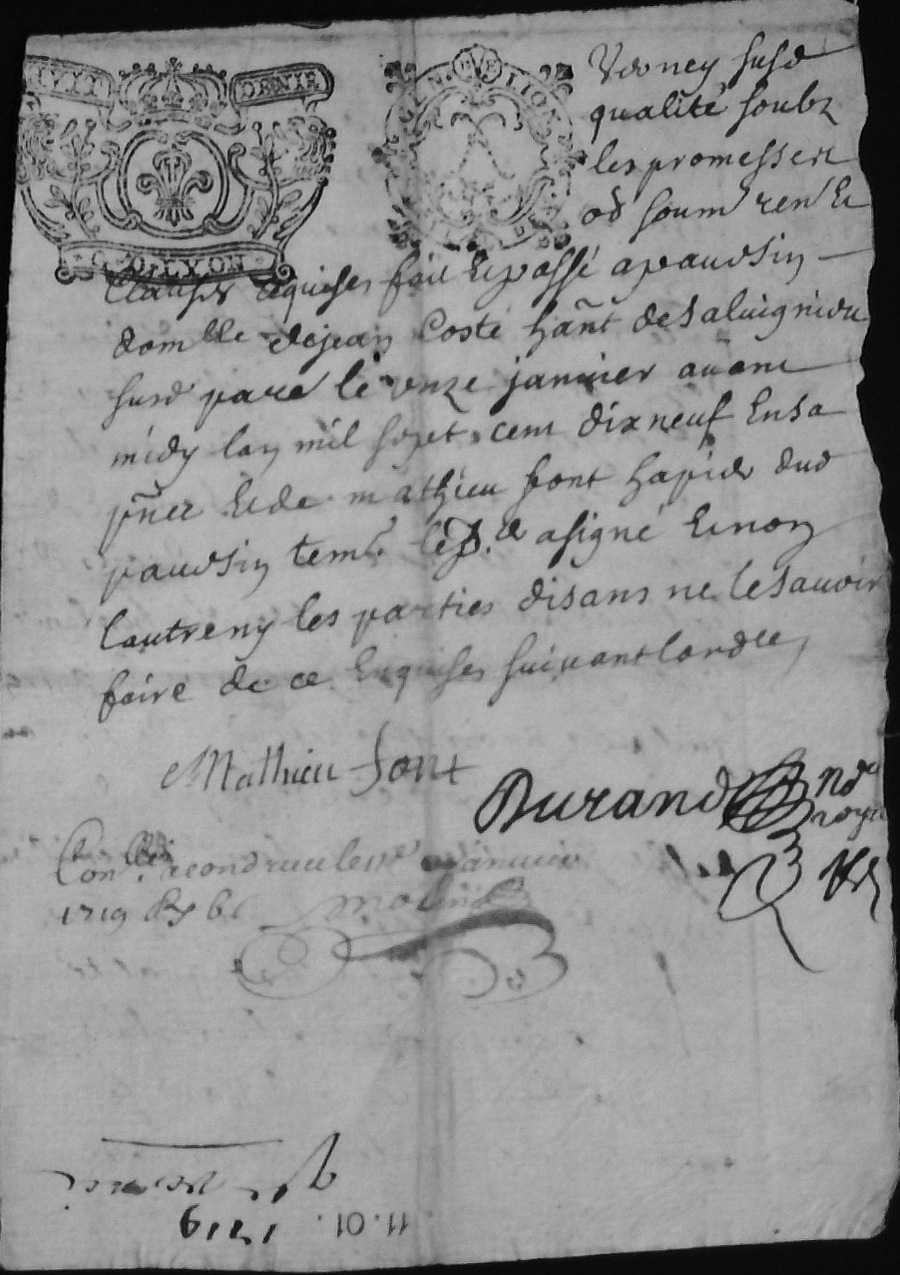 VII DENIE
G. D. LYON
GEN. DE LION
Verney susd
qualité soubz
les promesses et
od soum ren Et
Clauses requises fait Et passé a paudsin
domlle de jean Coste hant de saluignieu
susd parr le onze janvier avant
midy lan mil sept cent dix neuf En sa
pnce Et de mathieu font hapide dud
paudsin temt le p. er a signé Et non
lautre ny les parties disans ne le sauoir
faire de ce Enquises suiuant lordce
Mathieu font
Durand No
roya
Con.lle a condrieu le janvier
1719 R 6
molin
11. 01. 1719